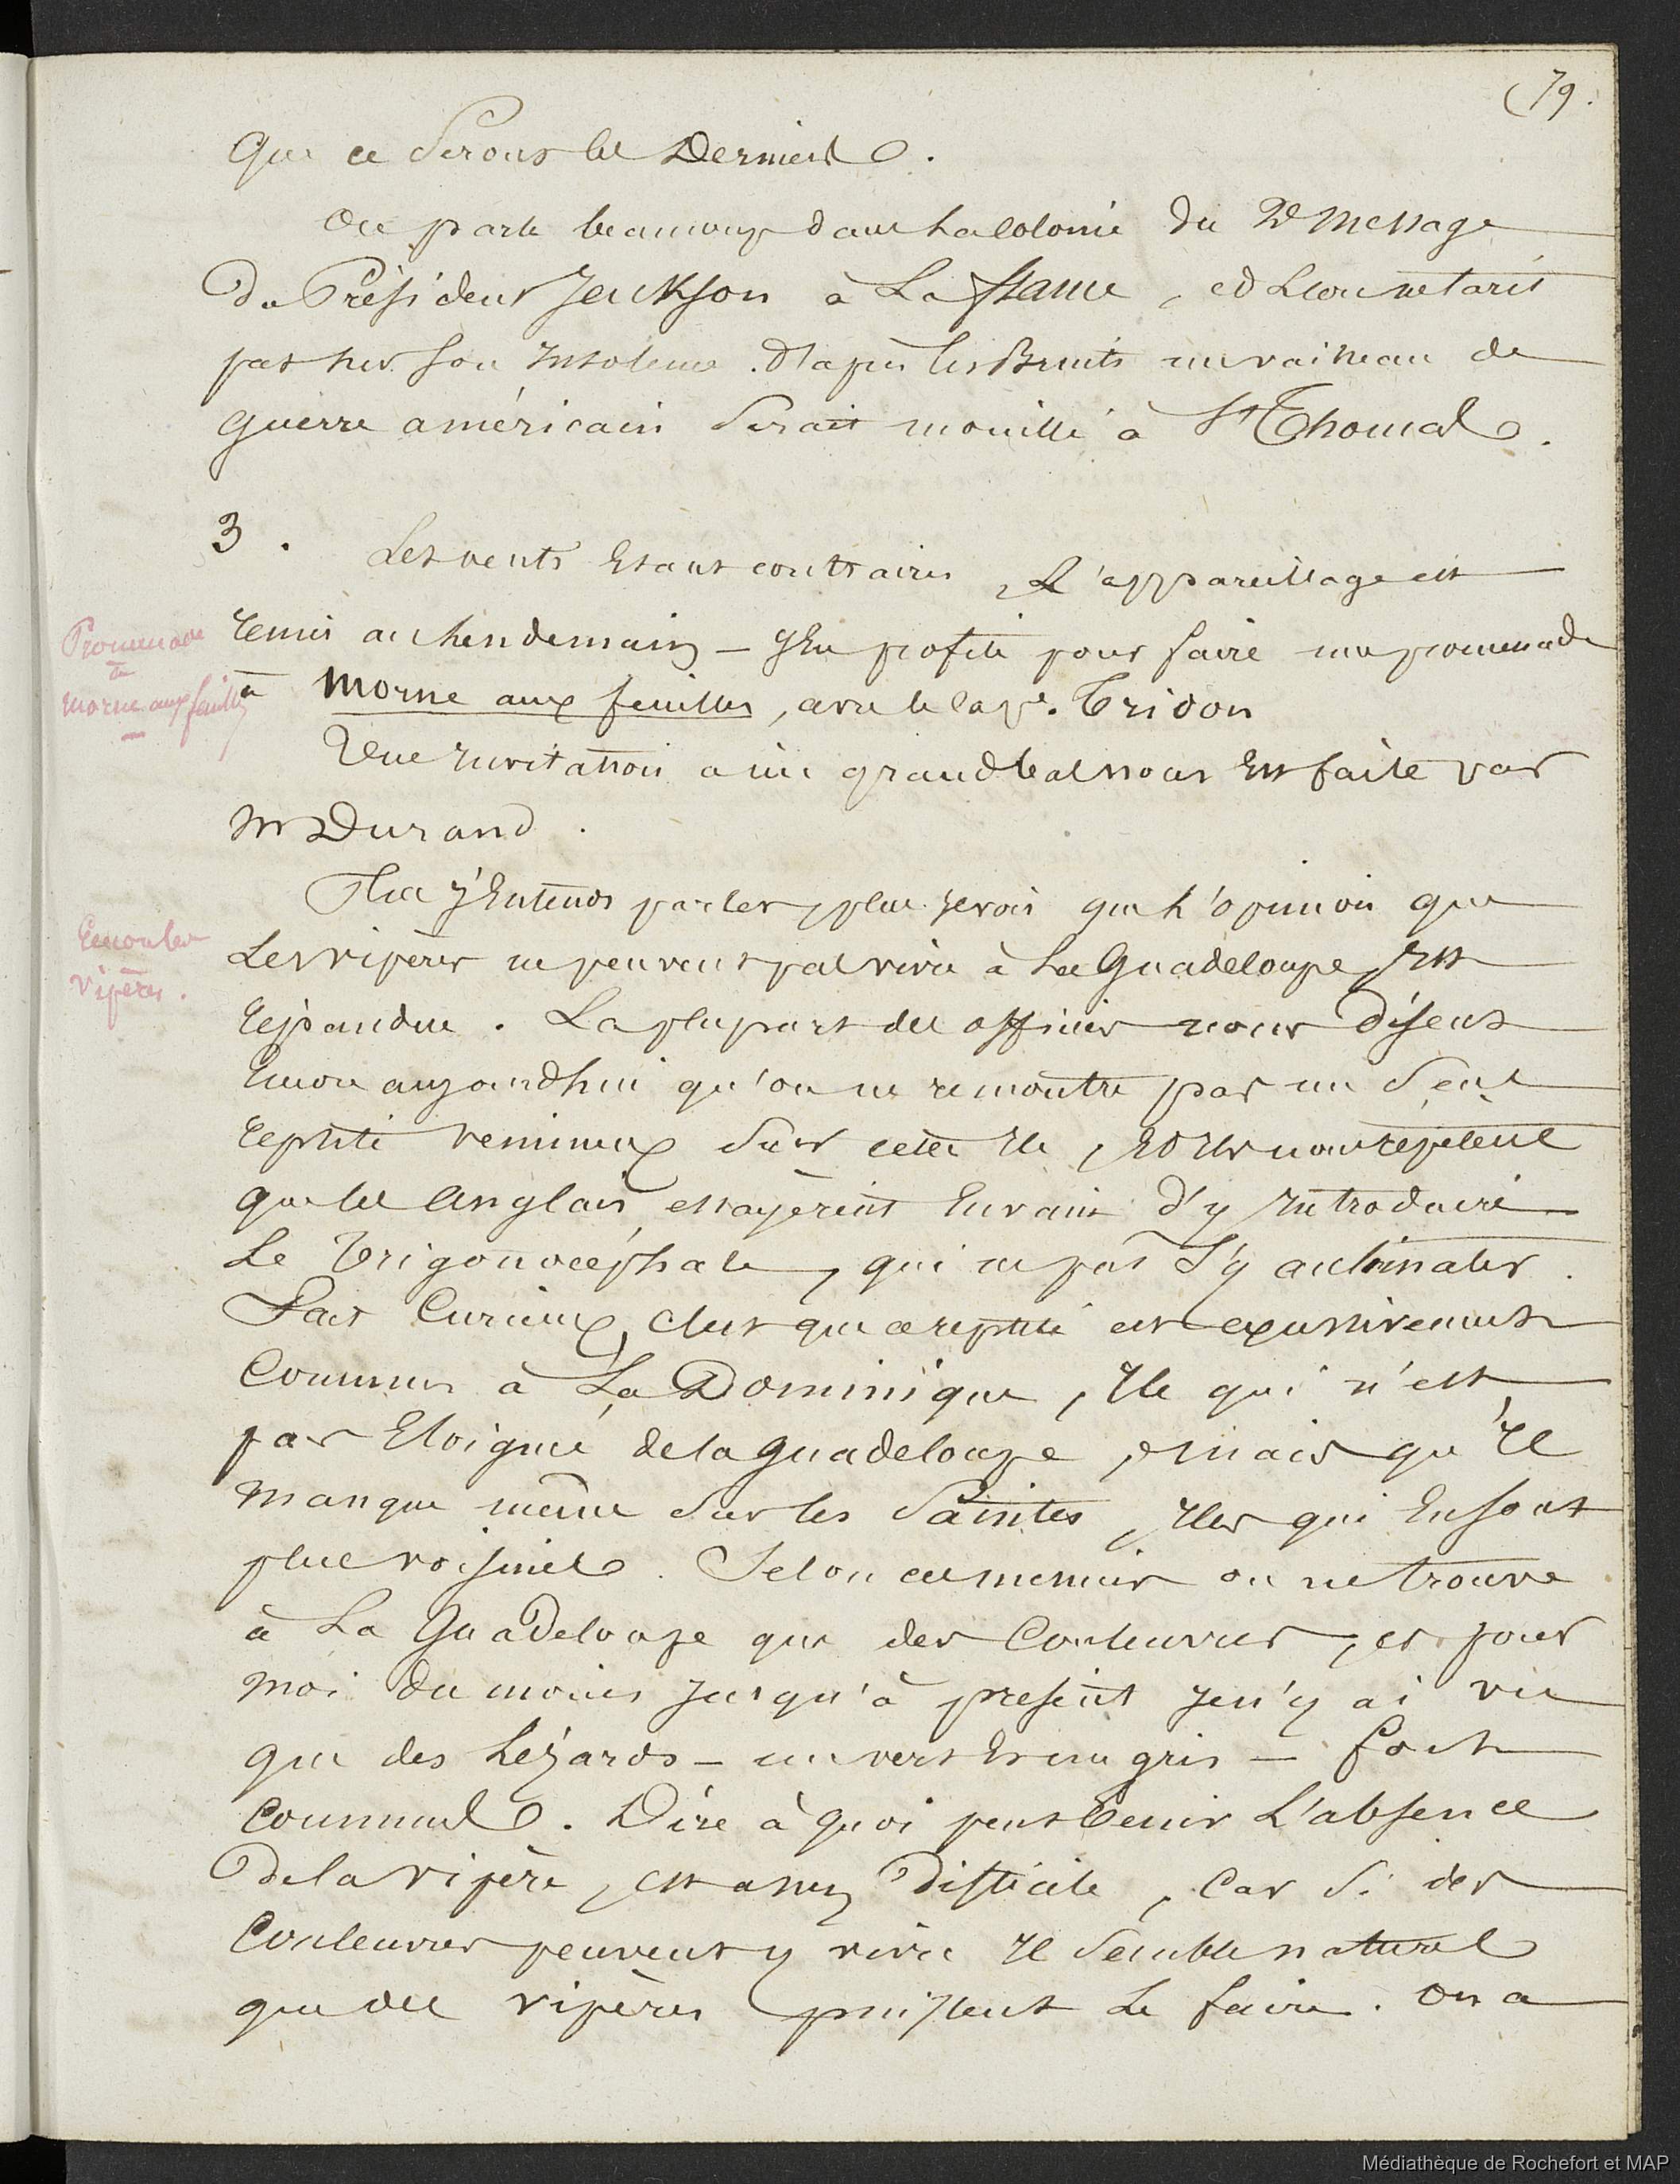 (79.
Que ce Serons les Derniers.
On parle beaucoup dans La Colonie du 2d Message
Du Président Jackson à La france, et L'on ne tarit
pas sur son Insolence. D'après les Bruits un vaisseau de
guerre américain Serait mouillé à St Thomas.
3. Les vents Etant contraires, L'appareillage est
Remis au Lendemain - J'En profite pour faire une promenade
Promenade
à
Morne aux feuilles
à Morne aux feuilles, avec le cape. Tridon
Une Invitation à un grand bal nous Est faite par
Mr Durand.
Plus j'Entends parler, plus Je vois que L'opinion que
Encore les
vipères.
Les vipères ne peuvent pas vivre à La Guadeloupe, Est
Répandue. La plupart des officiers nous Disent
Encore aujourdhui qu'on ne rencontre pas un Seul
Reptile venimeux Sur cette Ile, Et Ils nous répètent
que les Anglais essayèrent En vain d'y Introduire
Le Trigonocéphale, qui ne put S'y acclimater.
Fait Curieux, C'est que ce reptile est excessivement
Commun à La Dominique, Ile qui n'est
pas Eloignée de la Guadeloupe, mais qu'Il
manque même Sur les Saintes, Iles qui En sont
plus voisines. Selon ces messieurs on ne trouve
à La Guadeloupe que des Couleuvres, et pour
moi du moins Jusqu'à présent Je n'y ai vu
que des Lézards - un vert Et un gris - fort
Communs. Dire à quoi peut Tenir L'absence
De la vipère, Est assez Difficile, Car Si des
Couleuvres peuvent y vivre Il Semble naturel
que des vipères puissent Le faire. On a
Médiathèque de Rochefort et MAP